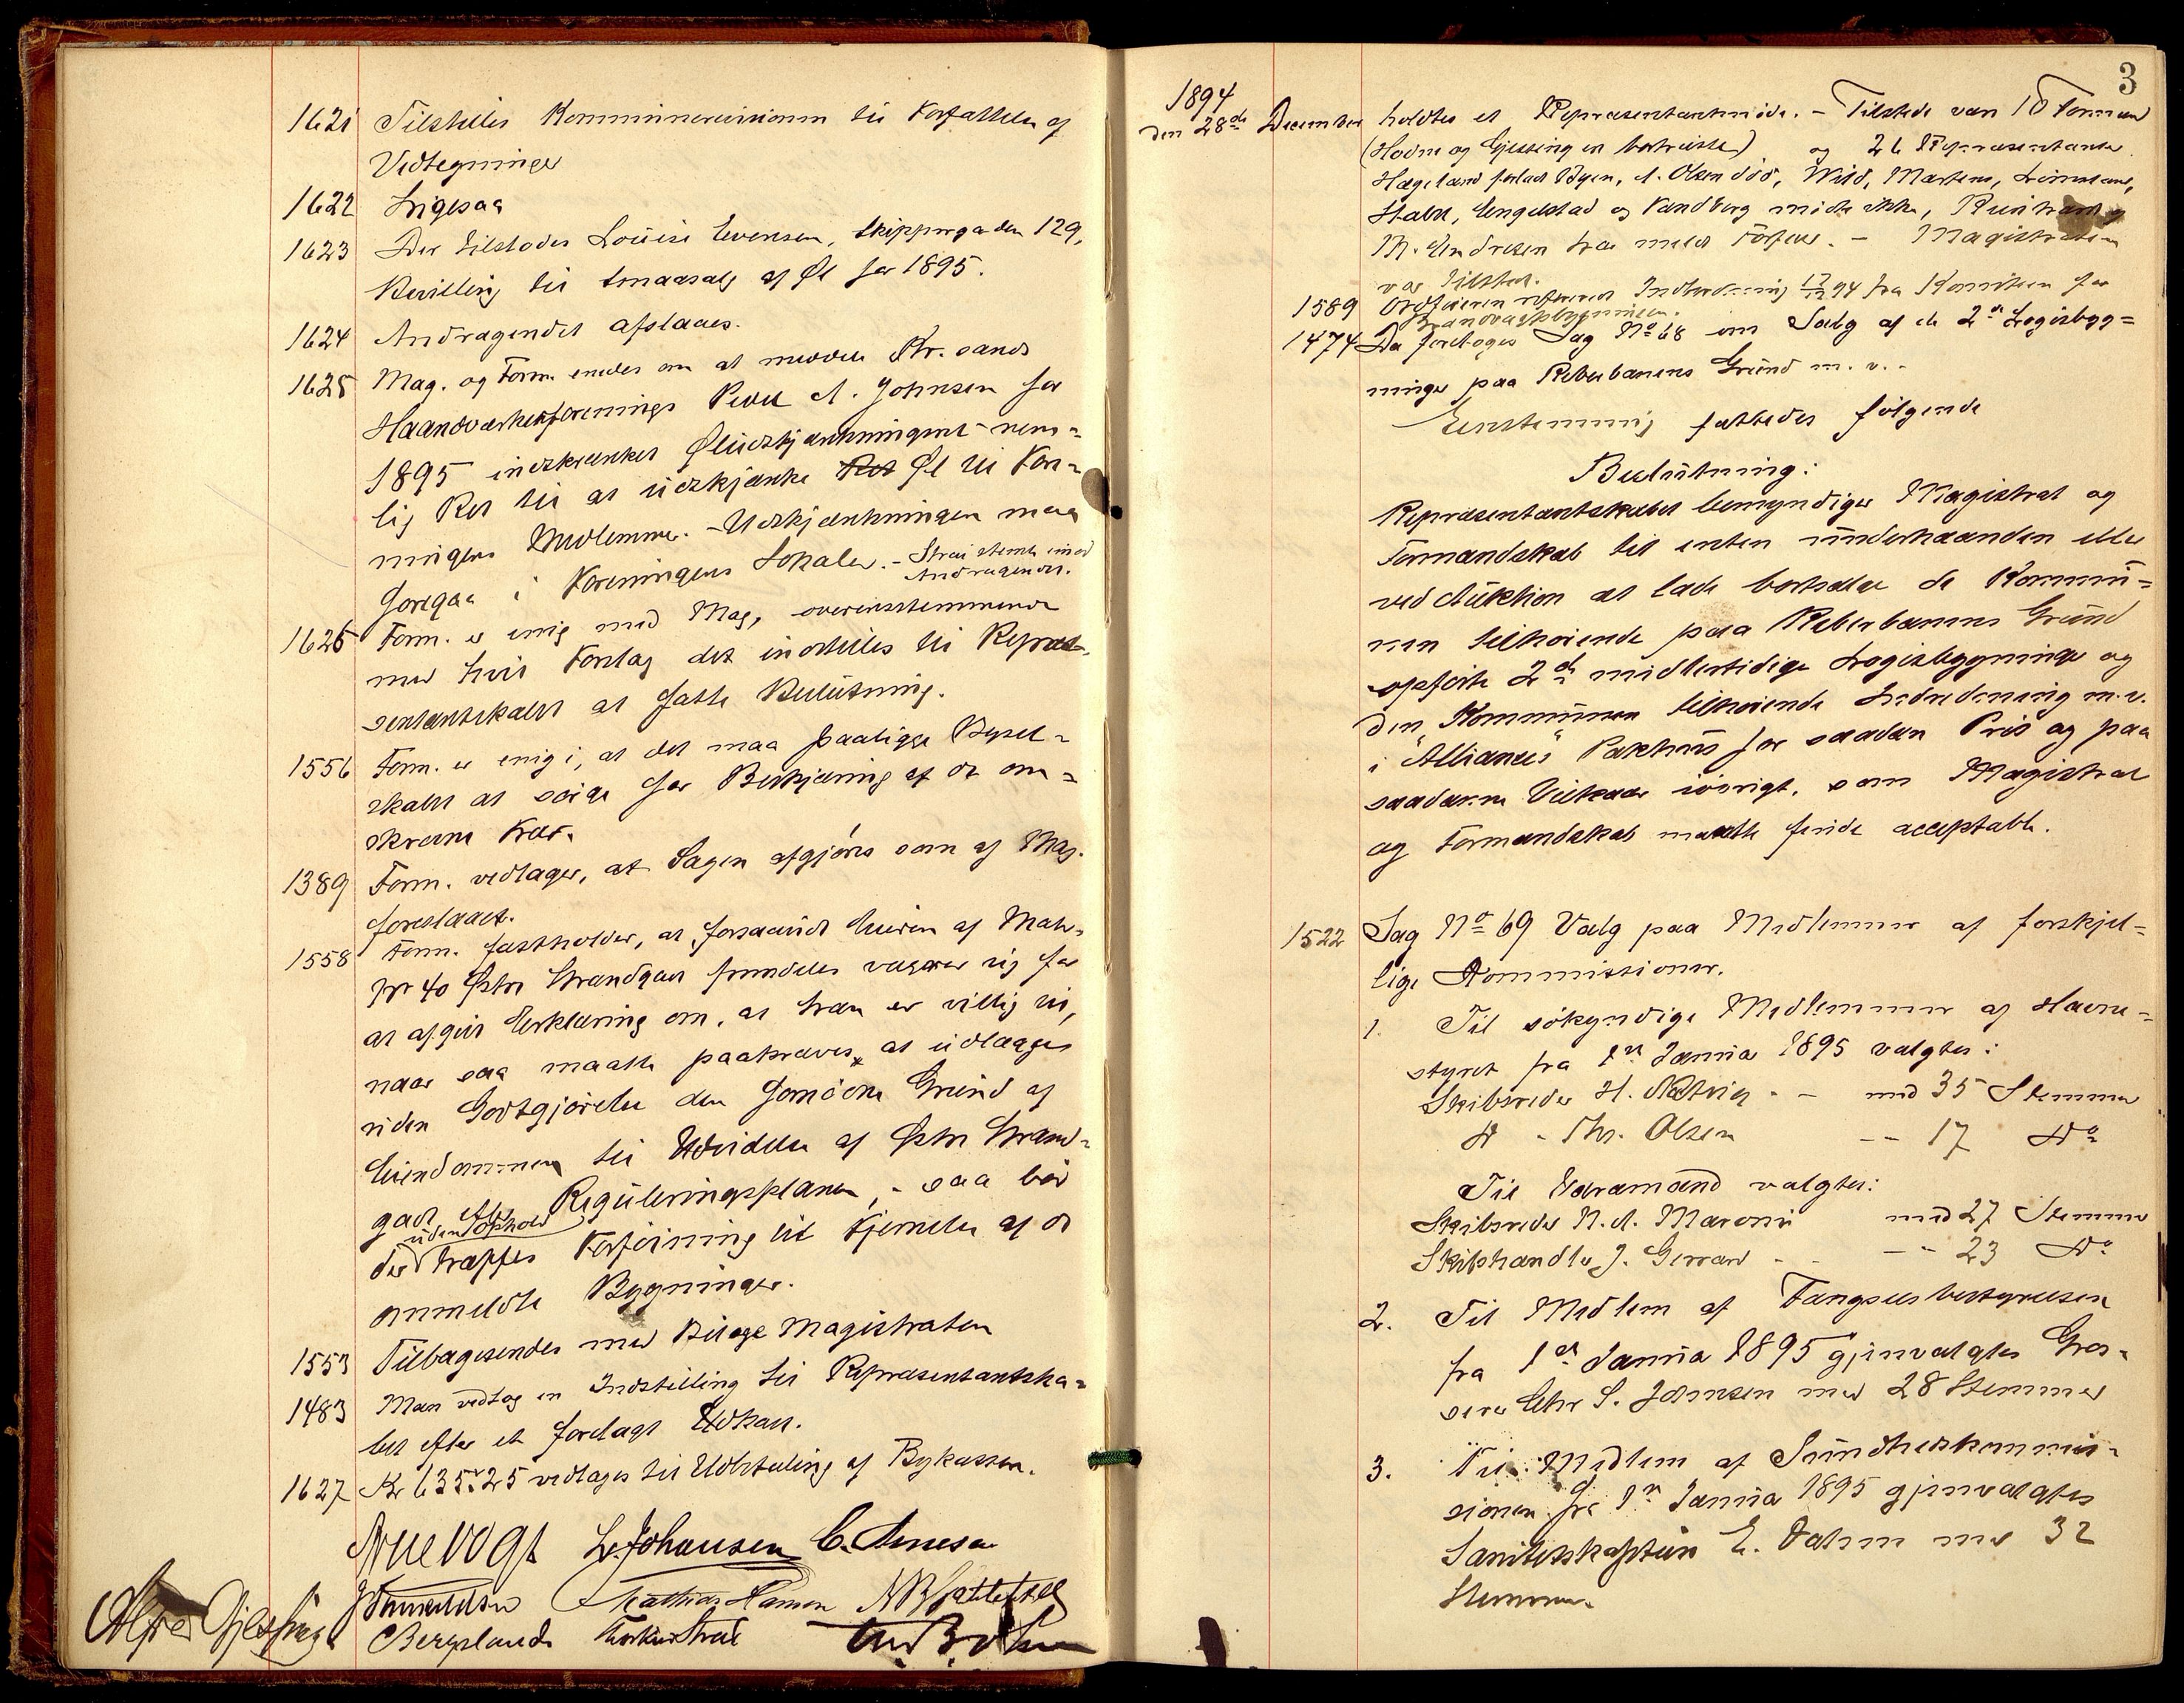 1621 Tilstilles Kommunerevisionen til Forfattelse af
Vedtegninger
1622 Ligesaa
1623 Der tilstodes Louise Evensen, Skippergaden 129,
Bevilling til Smaasalg af Øl for 1895.
1624 Andragendet afslaaes.
1625 Mag. og Form. enedes om at meddele Kr. sands
Haandværkerforenings A. Johnsen for
1895 indskrænket Øludskjænkningsret - nem=
lig Ret til at udskjænke Ret Øl til Fore=
ningens Medlemmer. - Udskjænkningen maa
foregaa i Foreningens Lokaler. - Strai stemte imod
Andragendet.
1626 Form. er enig med Mag, overensstemmende
med hvis Forslag det indstilles til Repræ=
sentantskabet at fatte Beslutning.
1556 Form. er enig i, at det maa paaligge Bysel=
skabet at sørge for Beskjæring af de om=
skrevne Træer.
1389 Form. vedtager, at Sagen afgjøres som af Mag.
foreslaaet.
1558 Form. fastholder, at forsaavidt Eieren af Matr.
Nr 40 Østre Strandgade fremdeles vægrer sig for
at afgive Erklæring om, at han er villig til,
naar saa maatte paakræves, at udlægge
uden Godtgjørelse den fornødne Grund af
Eiendommen til Udvidelse af Østre Strand=
gade efter Reguleringsplanen, - saa bør
uden Ophold
der træffes Forføining til Fjernelse af de
anmeldte Bygninger.
1553 Tilbagesendes med Bilage Magistraten
1483 Man vedtog en Indstilling til Repræsentantska=
bet efter et forelagt Udkast.
1627 Kr 635.25 vedtages til Udbetaling af Bykassen.
Arne Vogt L. Johansen C. Arnesen
Mathias Hansen
Alfred Gjessing Bergsland
3
1894
den 28de December holdtes et Repræsentantmøde. - Tilstede var 10 Formænd
(Hodne og Gjessing er bortreiste) og 26 Repræsentanter.
Hægeland forladt Byen, A. Olsen død, Wild, Martens,
Stabel, Engelstad og Vandborg mødte ikke, Reinhardt og
M. Andresen har meldt Forfald. - Magistraten
var tilstede.
1589 Ordføreren refererede Indberetning 17/12 94 fra Komiteen for
Brandvagtbygningen.
1474 Da foretoges Sag No 68 om Salg af de 2de Logisbyg=
ninger paa Reberbanens Grund m. v. -
Eenstemmig fattedes følgende
Beslutning:
Repræsentantskabet bemyndiger Magistrat og
Formandskab til enten underhaanden eller
ved Auktion at lade bortsælge de Kommu=
nen tilhørende paa Reberbanens Grund
opførte 2de midlertidige Logisbygninger og
den Kommunen tilhørende Indredning m. v.
i "Alliances" Pakhus for saadan Pris og paa
saadanne Vilkaar iøvrigt, som Magistrat
og Formandskab maatte finde acceptable.
1522 Sag No 69 Valg paa Medlemmer af forskjel=
lige Kommissioner.
1. Til søkyndige Medlemmer af Havne=
styret fra 1ste Januar 1895 valgtes:
Skibsreder H. Natvig - - med 35 Stemmer
Do - Ths. Olsen - - 17 Do
Til Varamænd valgtes:
Skibsreder N. A. Maroni med 27 Stemmer
Skibshandler J. Gerrard - - - 23 Do
2. Til Medlem af Fængselsbestyrelsen
fra 1ste Januar 1895 gjenvalgtes Gros=
serer Chr S. Johnsen med 28 Stemmer
3. Til Medlem af Sundhedskommis=
sionen fra 1ste Januar 1895 gjenvalgtes
Sanitetskaptein E. Dahm med 32
Stemmer.